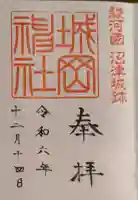 駿河國 沼津城跡
奉拝
城岡神社
令和六年
十二月十四日